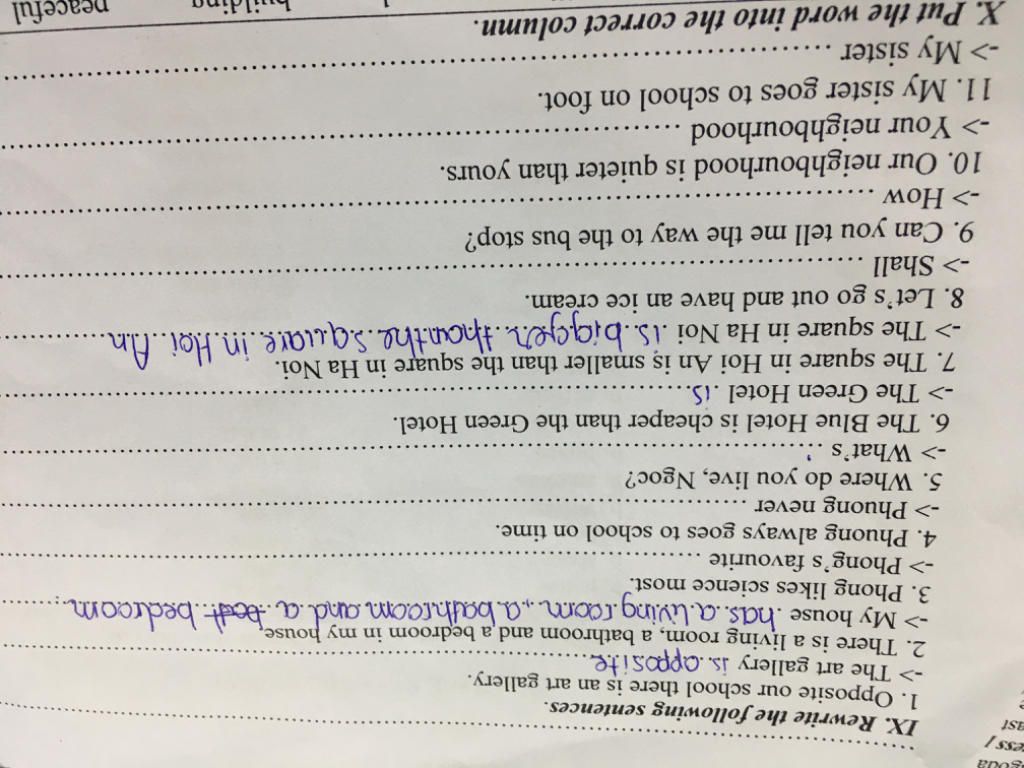 ess /
ast
IX. Rewrite the following sentences.
1. Opposite our school there is an art gallery.
-> The art gallery is opposite
2. There is a living room, a bathroom and a bedroom in my house.
-> My house has a living room, a bathroom and a bedroom
3. Phong likes science most.
-> Phong's favourite
4. Phuong always goes to school on time.
-> Phuong never
5. Where do you live, Ngoc?
-> What's
6. The Blue Hotel is cheaper than the Green Hotel.
-> The Green Hotel is
7. The square in Hoi An is smaller than the square in Ha Noi.
-> The square in Ha Noi is bigger than the square in Hoi An
8. Let's go out and have an ice cream.
-> Shall
9. Can you tell me the way to the bus stop?
-> How
10. Our neighbourhood is quieter than yours.
-> Your neighbourhood
11. My sister goes to school on foot.
-> My sister
X. Put the word into the correct column.
building peaceful